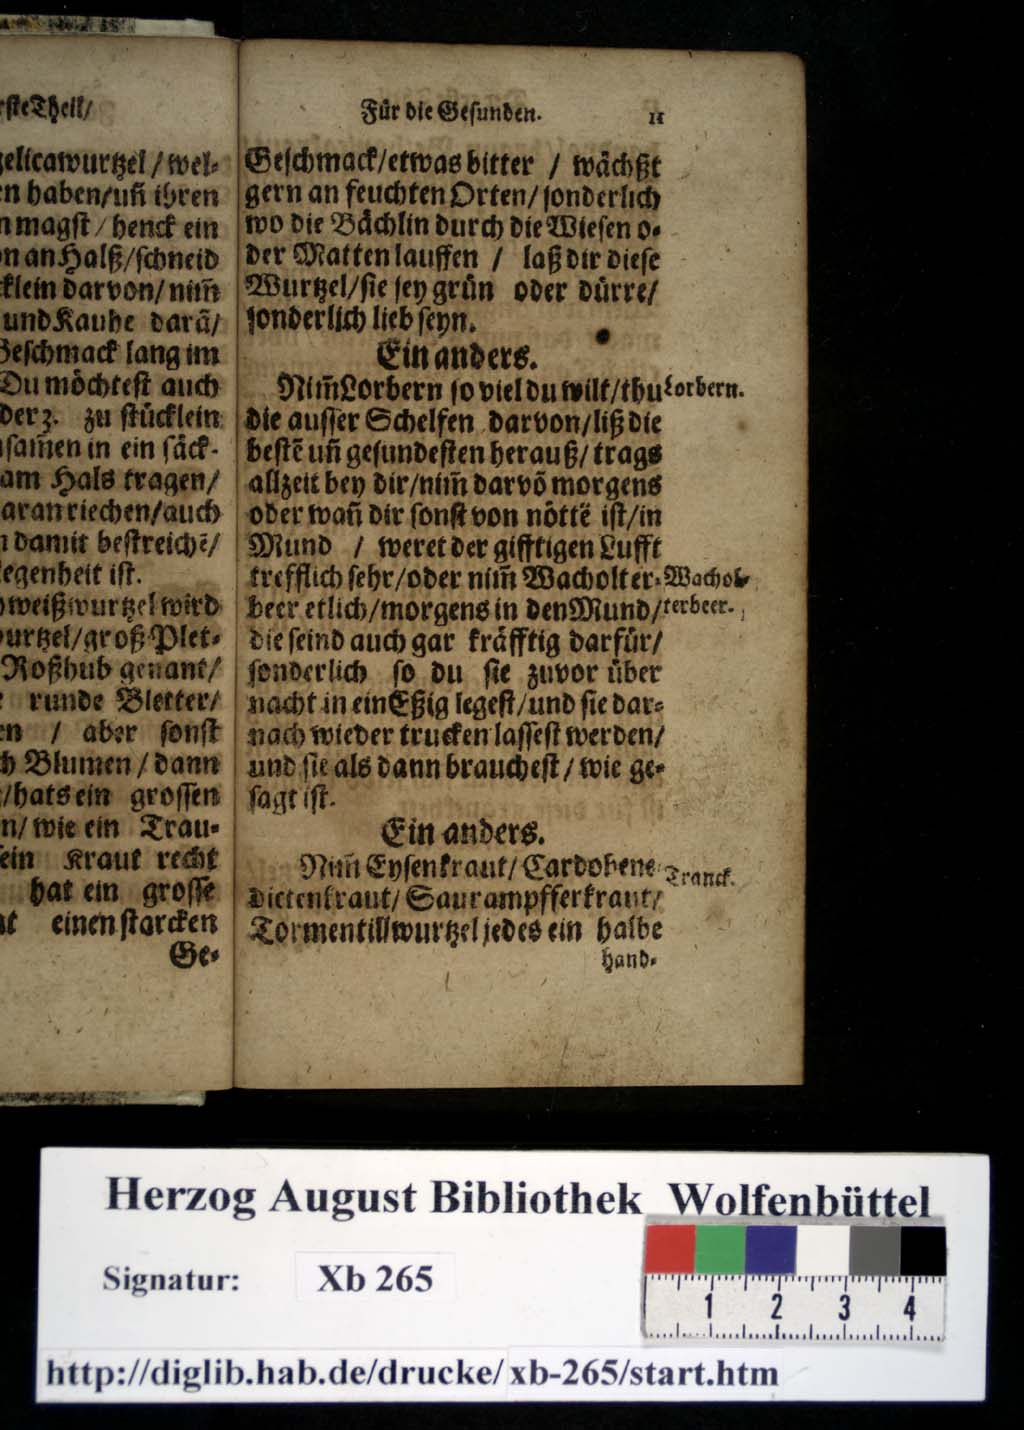 rste Theil/
gelicawurtzel / wel-
en haben/uñ ihren
magst / henck ein
an Halß/schneid
cklein darvon/ nim̃
und Kauhe darã/
Geschmack lang im
Du möchtest auch
der 3. zu stücklein
samen in ein säck-
am Hals tragen/
aran riechen/auch
damit bestreichẽ/
egenheit ist.
weißwurtzel wird
wurtzel/groß Plet-
Roßhub genant/
runde Bletter/
en / aber sonst
Blumen / dann
/hats ein grossen
n/ wie ein Trau-
sein Kraut recht
hat ein grosse
einen starcken
Ge-
Für die Gesunden. 11
Geschmack/etwas bitter / wächßt
gern an feuchten Orten/ sonderlich
wo die Bächlin durch die Wiesen o-
der Matten lauffen / laß dir diese
Wurtzel/sie sey grün oder dürre/
sonderlich lieb seyn.
Ein anders.
Nim̃ Lorbern so viel du wilt/thu Lorbern.
die ausser Schelfen darvon/liß die
bestẽ uñ gesundesten herauß/ trags
allzeit bey dir/nim̃ darvõ morgens
oder wañ dir sonst von nöttẽ ist/in
Mund / weret der gifftigen Lufft
trefflich sehr/oder nim̃ Wacholter- Wachol-
beer etlich/morgens in den Mund/ terbeer.
die seind auch gar kräfftig darfür/
sonderlich so du sie zuvor über
nacht in ein Eßig legest/und sie dar-
nach wieder trucken lassest werden/
und sie als dann brauchest / wie ge-
sagt ist.
Ein anders.
Nim̃ Eysenkraut/ Cardobene Tranck.
dictenkraut/ Saurampfferkraut/
Tormentillwurtzel jedes ein halbe
hand-
Herzog August Bibliothek Wolfenbüttel
Signatur: Xb 265
1 2 3 4
http://diglib.hab.de/drucke/xb-265/start.htm